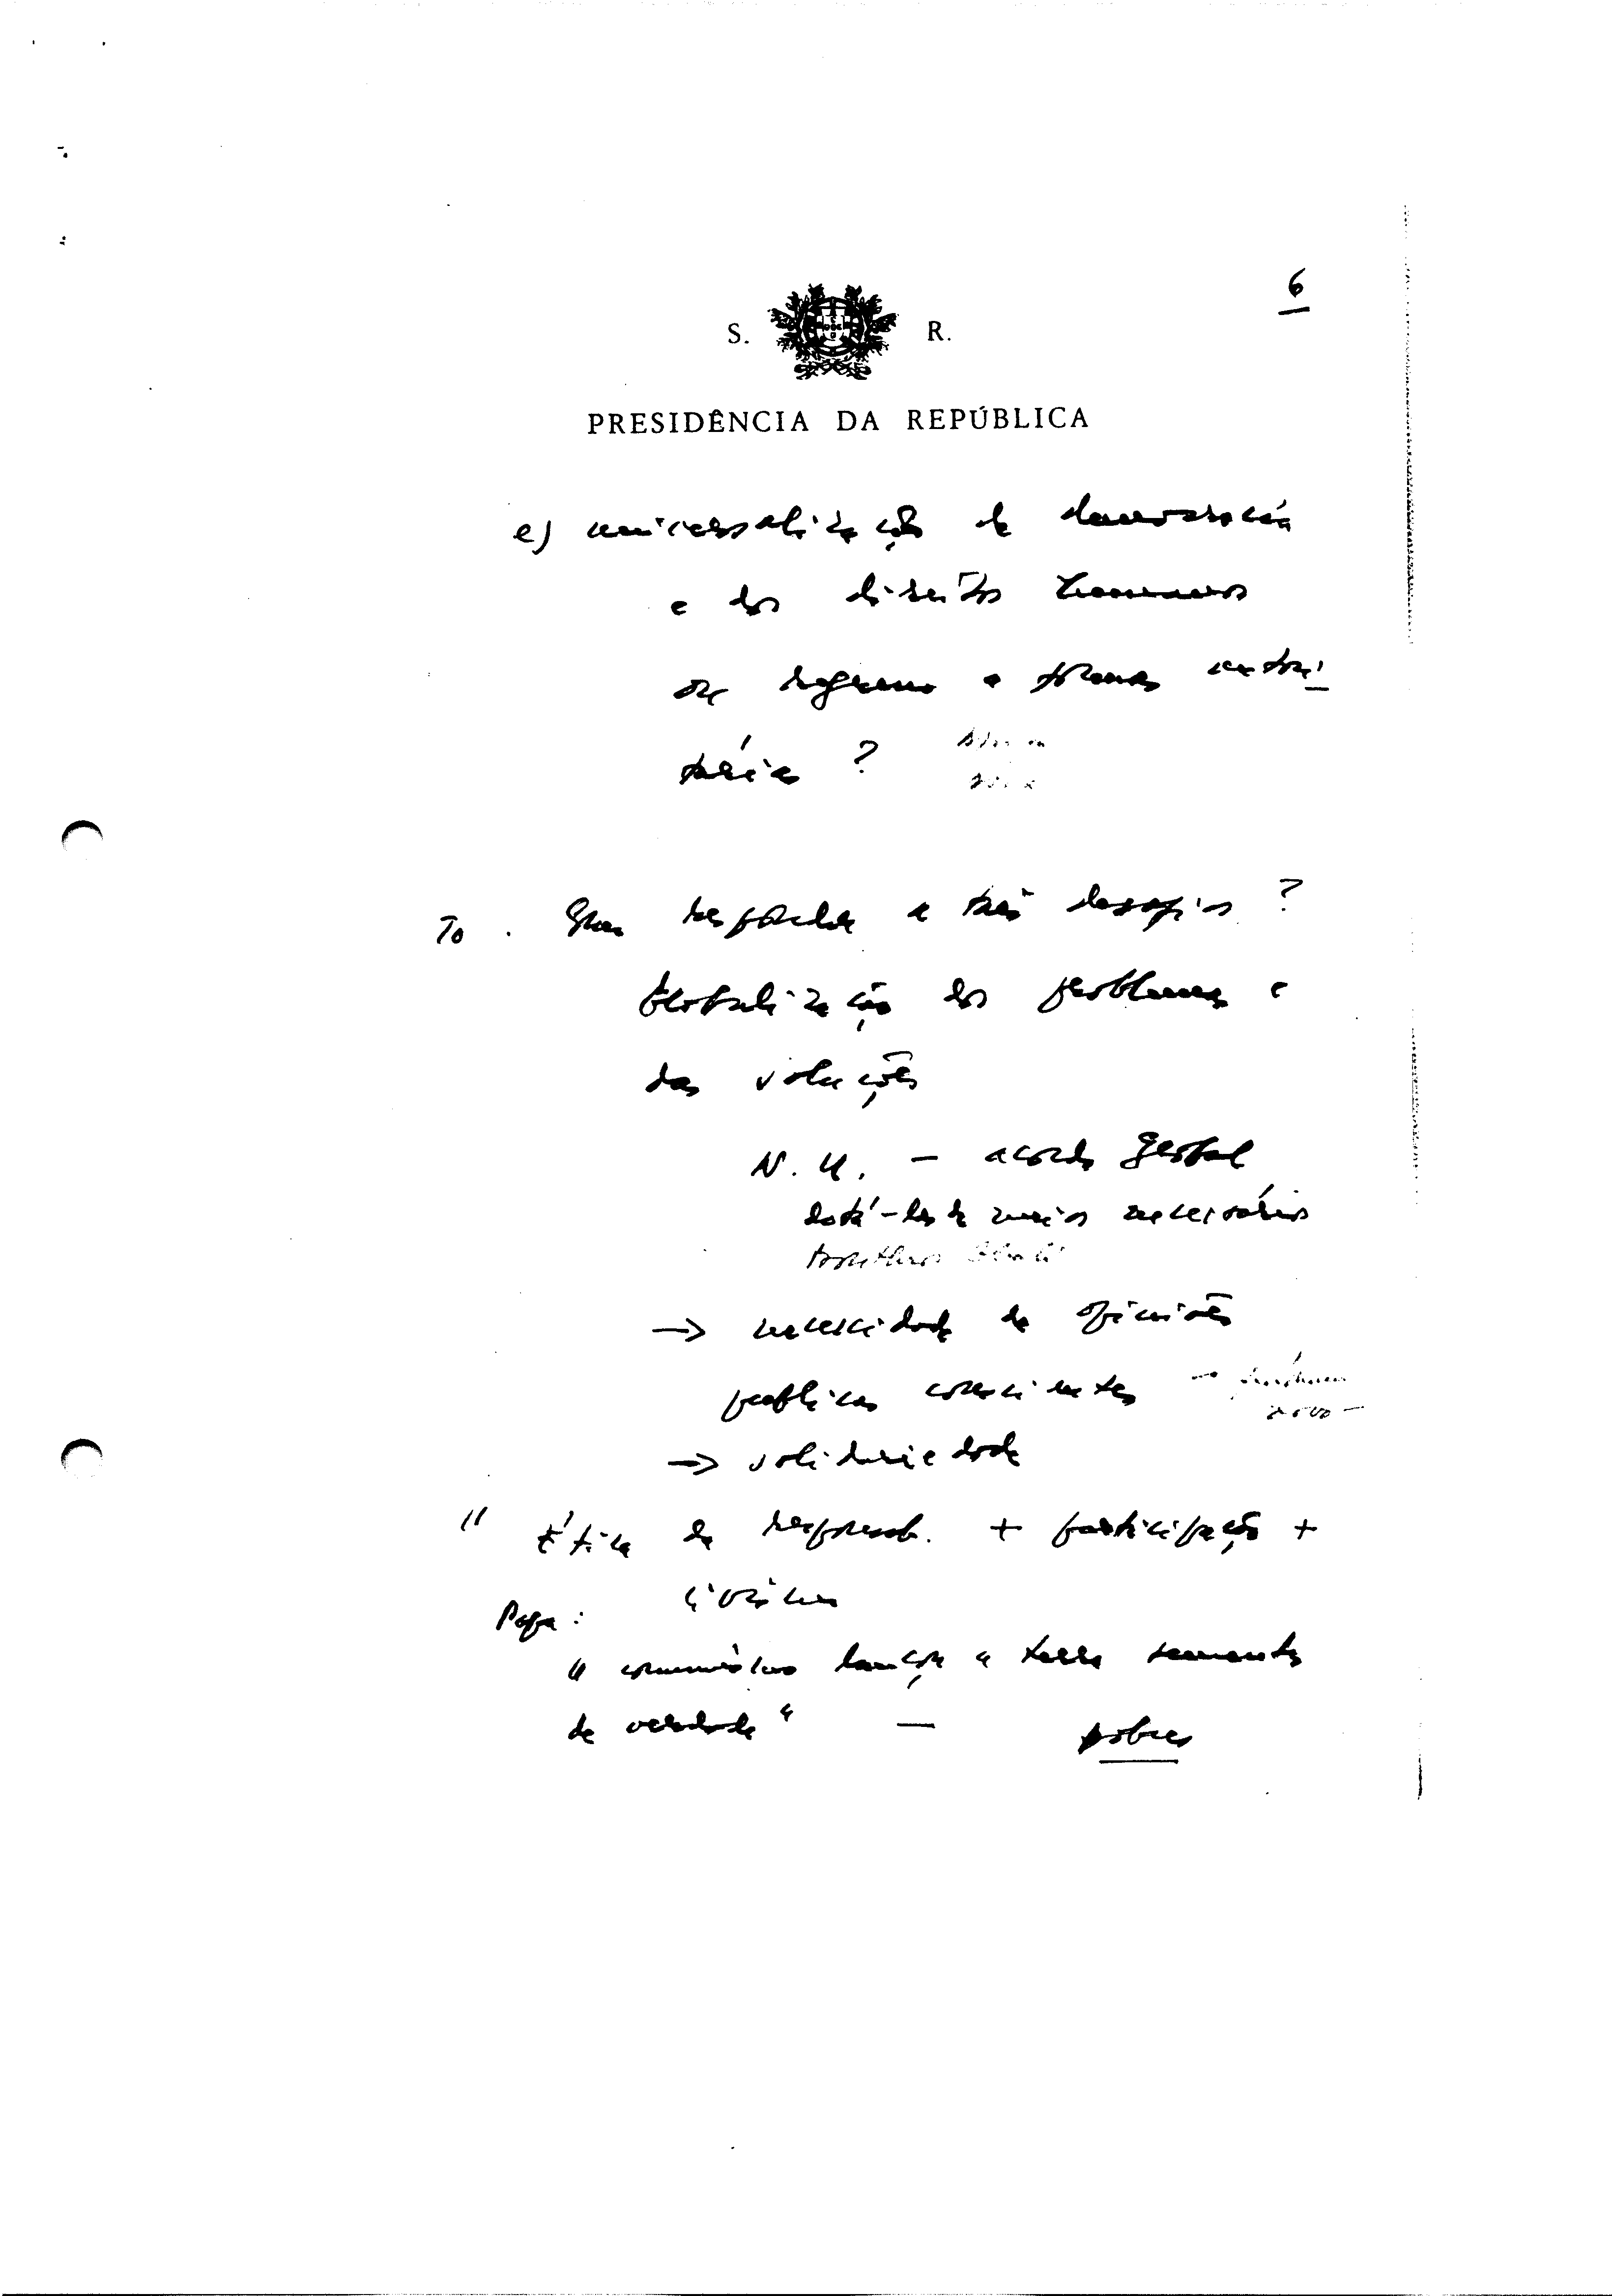 6
S. R.
PRESIDÊNCIA DA REPÚBLICA
e) universalização da democracia
e dos direitos humanos
ou regresso a formas autori
tárias ?
To . Que resposta a tais desafios ?
Globalização dos problemas e
das soluções
N. U. — acordo global
dotá-las de meios necessários
Bouthros Ghali
→ necessidade de opiniões
públicas conscientes —
2000 —
→ solidariedade
" Ética da responsab. + participação +
Papa :
" comunismo lançou à terra sementes
de verdade " — pobres